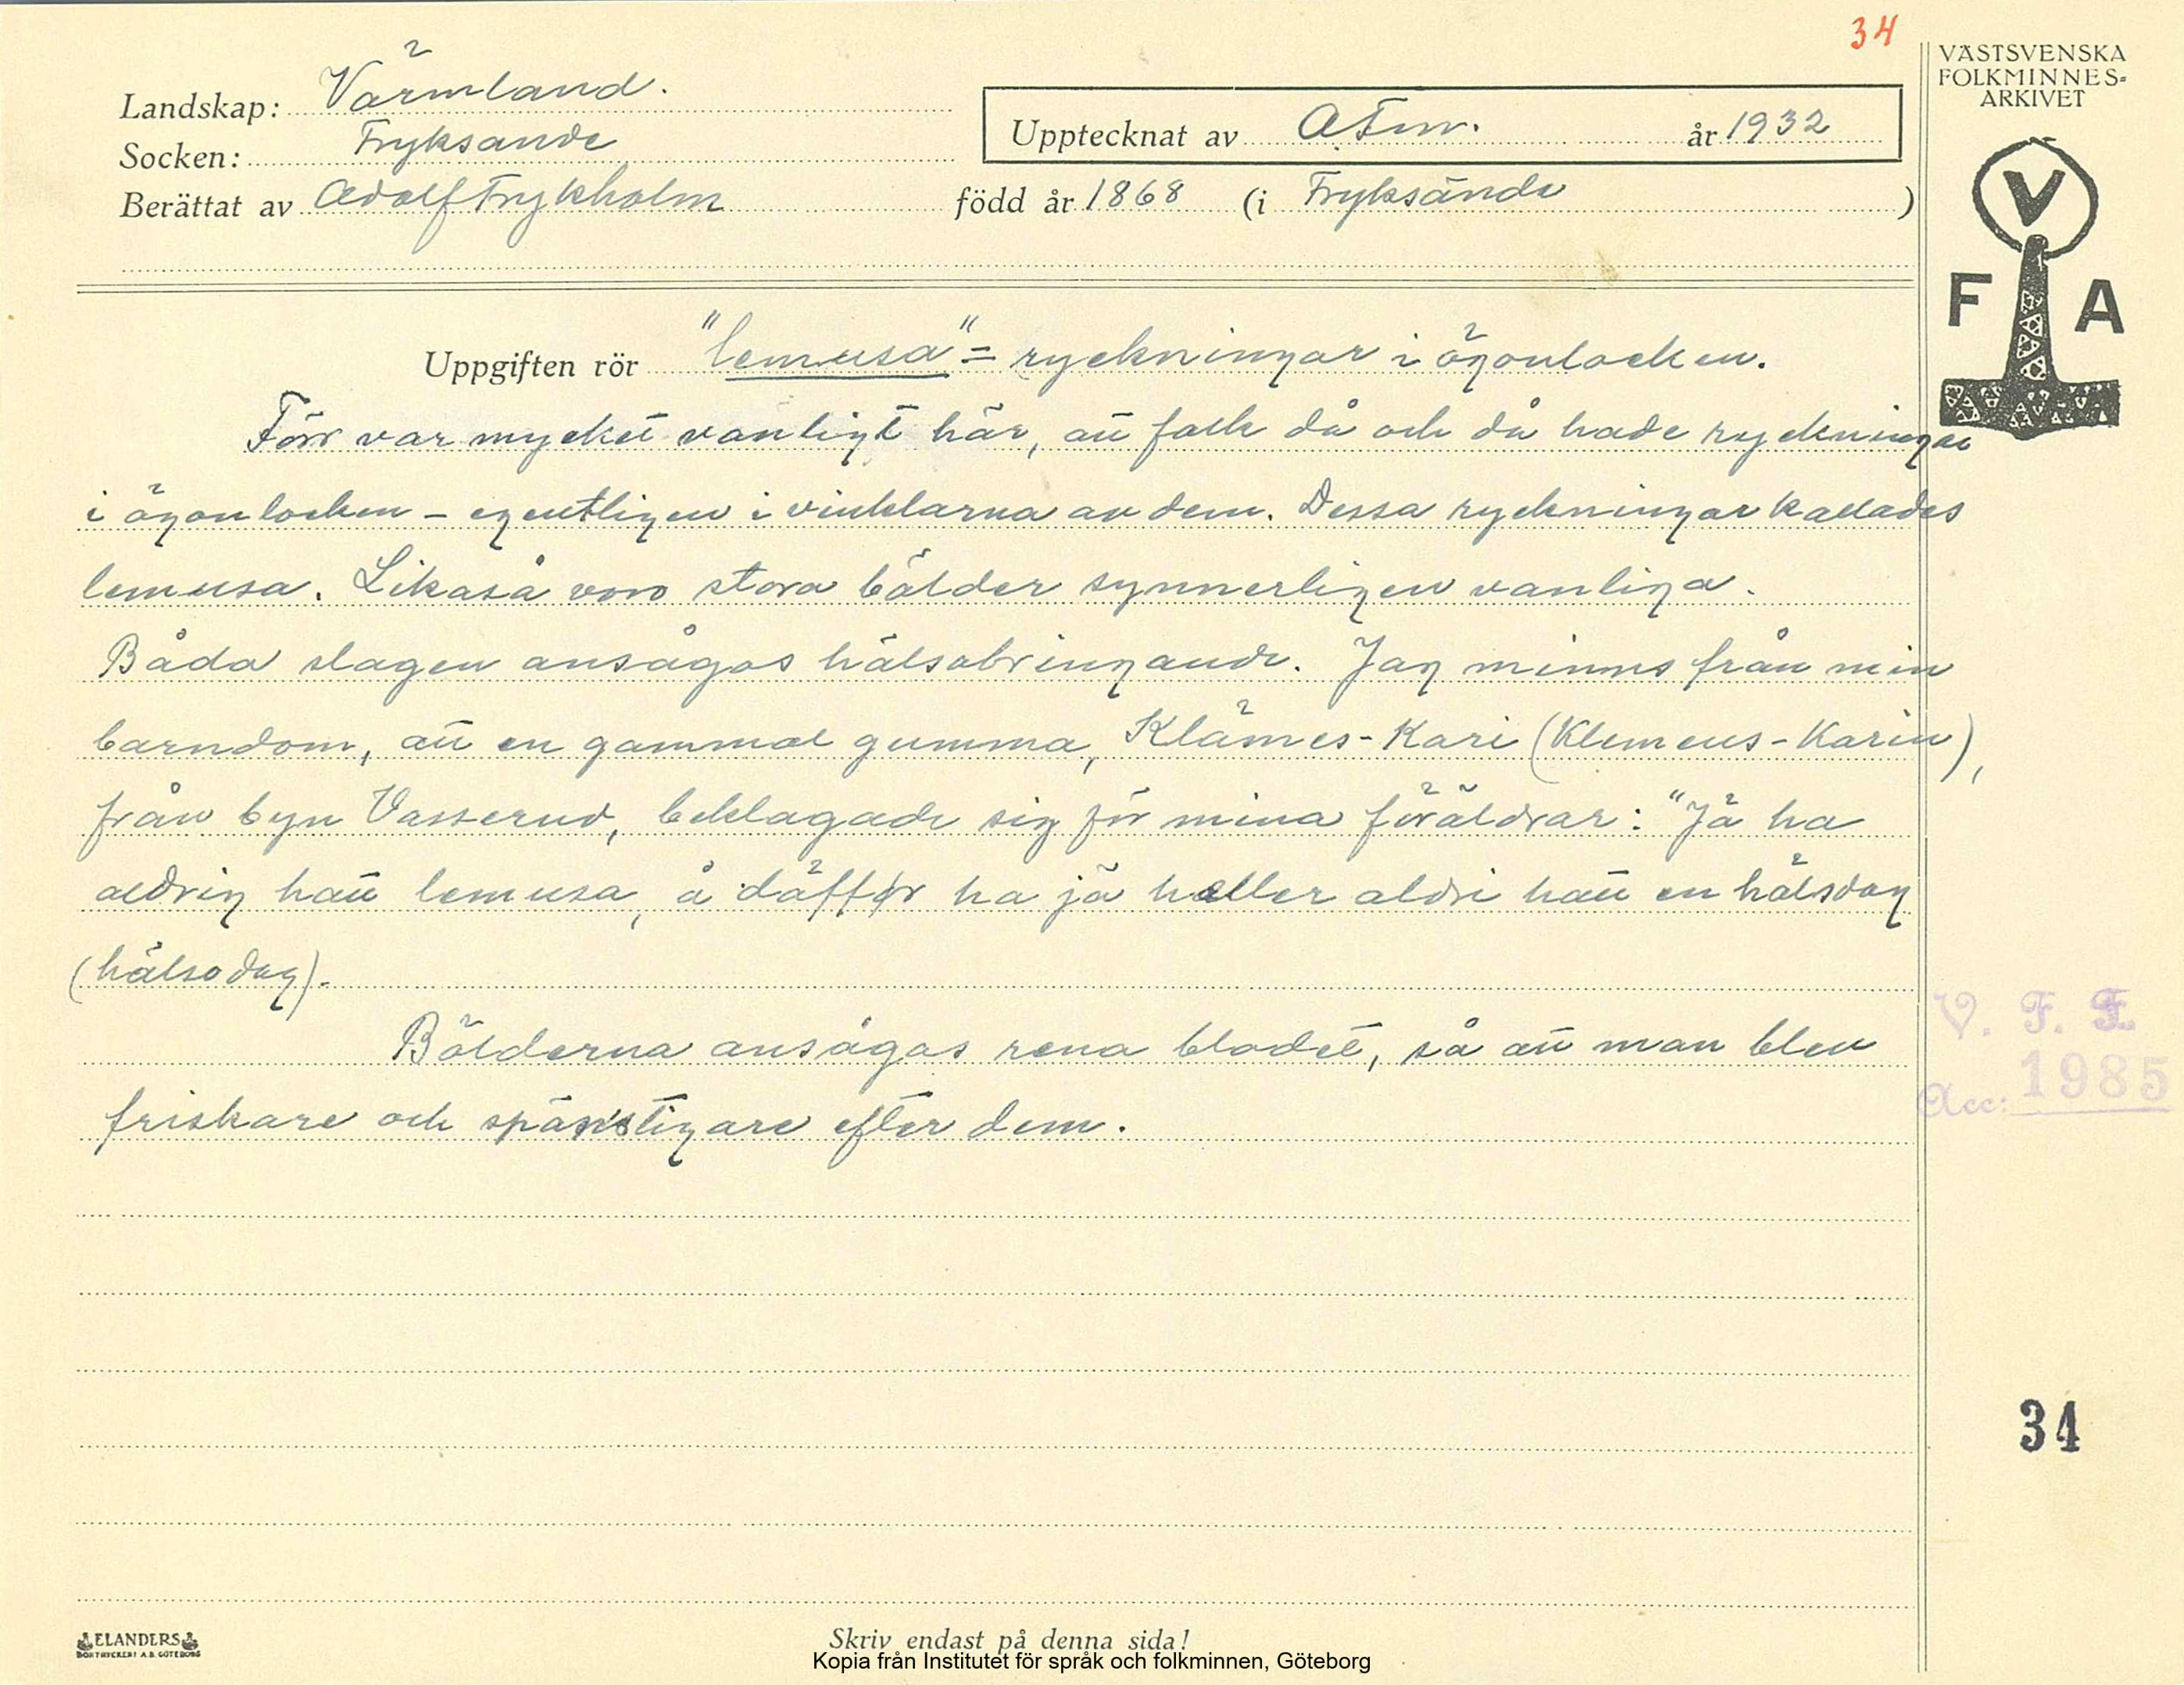 34
VÄSTSVENSKA
FOLKMINNES-
ARKIVET
Landskap: Värmland.
Socken: Fryksände
Upptecknat av A Fm. år 1932
Berättat av Adolf Frykholm född år 1868 (i Fryksände )
V
F A
Uppgiften rör "lemusa" = ryckningar i ögonlocken.
Förr var mycket vanligt här, att folk då och då hade ryckningar
i ögonlocken – egentligen i vinklarna av dem. Dessa ryckningar kallades
lemusa. Likaså voro stora bölder synnerligen vanliga.
Båda slagen ansågos hälsobringande. Jag minns från min
barndom, att en gammal gumma, Klämes-Kari (Klemens-Karin),
från byn Vasserud, beklagade sig för mina föräldrar: "Jä ha
aldrig hatt lemusa, å däfför ha jä heller aldri hatt en hälsdag
(hälsodag).
Bölderna ansågos rena blodet, så att man blev
friskare och spänstigare efter dem.
V. F. F.
Acc: 1985
34
ELANDERS
BOKTRYCKERI A.B. GÖTEBORG
Skriv endast på denna sida!
Kopia från Institutet för språk och folkminnen, Göteborg